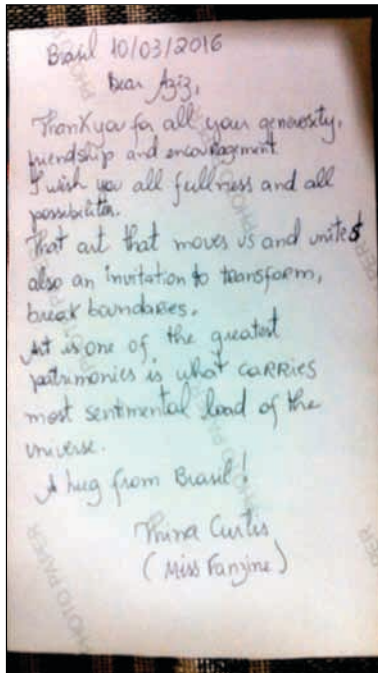 Brasil 10/03/2016
Dear Aziz,
Thank you for all your generosity,
friendship and encouragement
I wish you all fullness and all
possibilities.
That art that moves us and unites
also an invitation to transform,
break boundaries.
Art is one of the greatest
patrimonies is what CARRIES
most sentimental load of the
universe.
A hug from Brasil!
Thina Curtis
(Miss Fanzine)
PHOTO PAPER
PHOTO PAPER